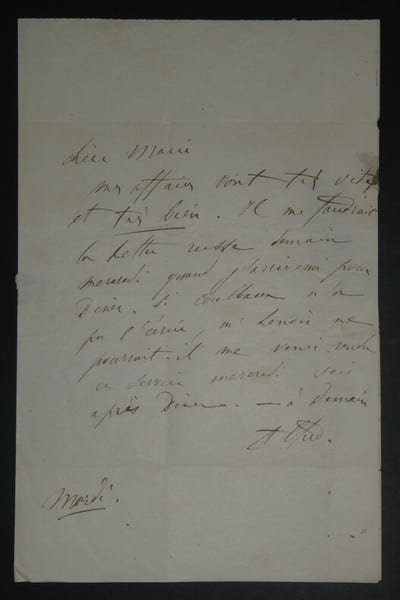 chère Marie
mes affaires vont très vite
et très bien. Il me faudrait
la lettre russe demain
mercredi quand j'arriverai pour
Diner. Si n'a
pu l'écrire, mr Lenoir ne
pourrait-il me venir rendre
ce service mercredi soir
après Diner. — à Demain
Alfred.
Mardi.